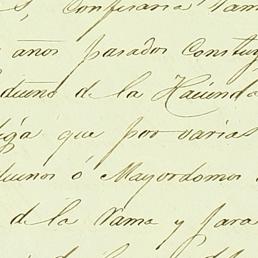 Confesaria Vama
años pasados Constuy
dueño de la Hacienda
diga que por varias
duenos ó Mayordomos
de la Vama y para